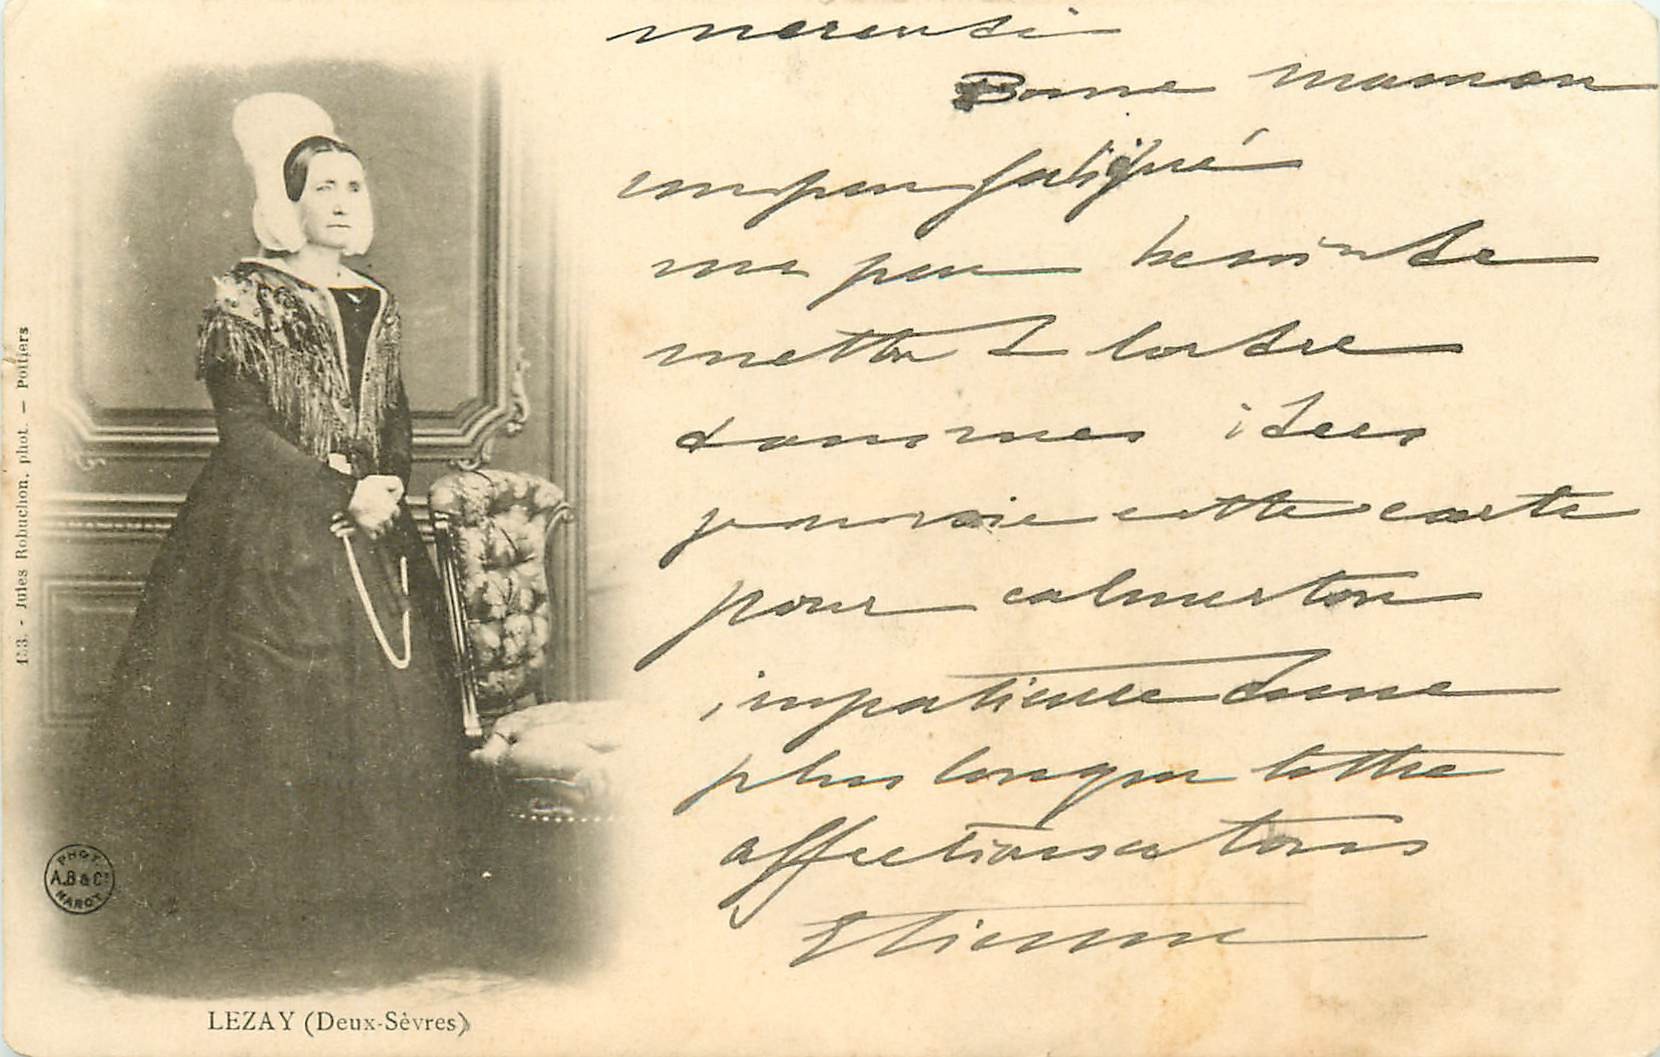 mercredi
Bonne maman
un peu fatigué
un peu besoin de
mettre de lordre
dans mes idées
j'envoie cette carte
pour calmer ton
impatience dune
plus longue lettre
affections a tous
Etienne
133. - Jules Robuchon, phot. — Poitiers
PHOT.
A.B & Cie
NAROT
LEZAY (Deux-Sèvres)